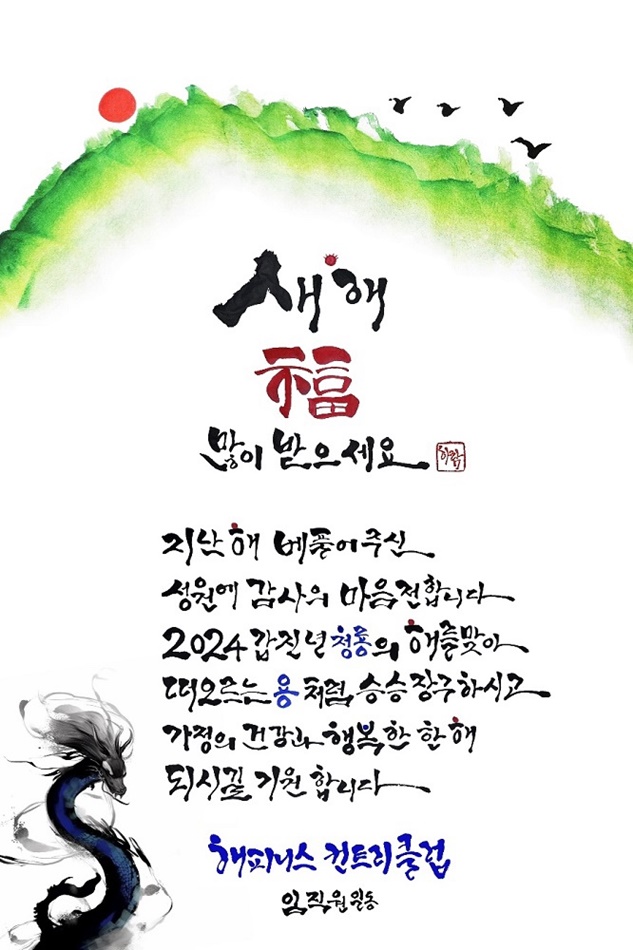 새해
福
많이 받으세요
하람
지난 해 베풀어주신
성원에 감사의 마음전합니다
2024 갑진년 청룡의 해를맞아
떠오르는 용처럼 승승장구하시고
가정의 건강과 행복한 한 해
되시길 기원 합니다
해피니스 컨트리클럽
임직원 일동